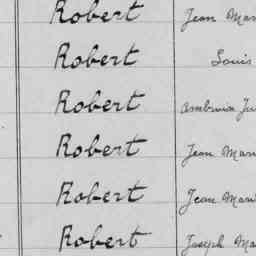 Robert Jean Mar
Robert Louis
Robert Ambroise Ju
Robert Jean Mari
Robert Jean Mari
Robert Joseph Ma